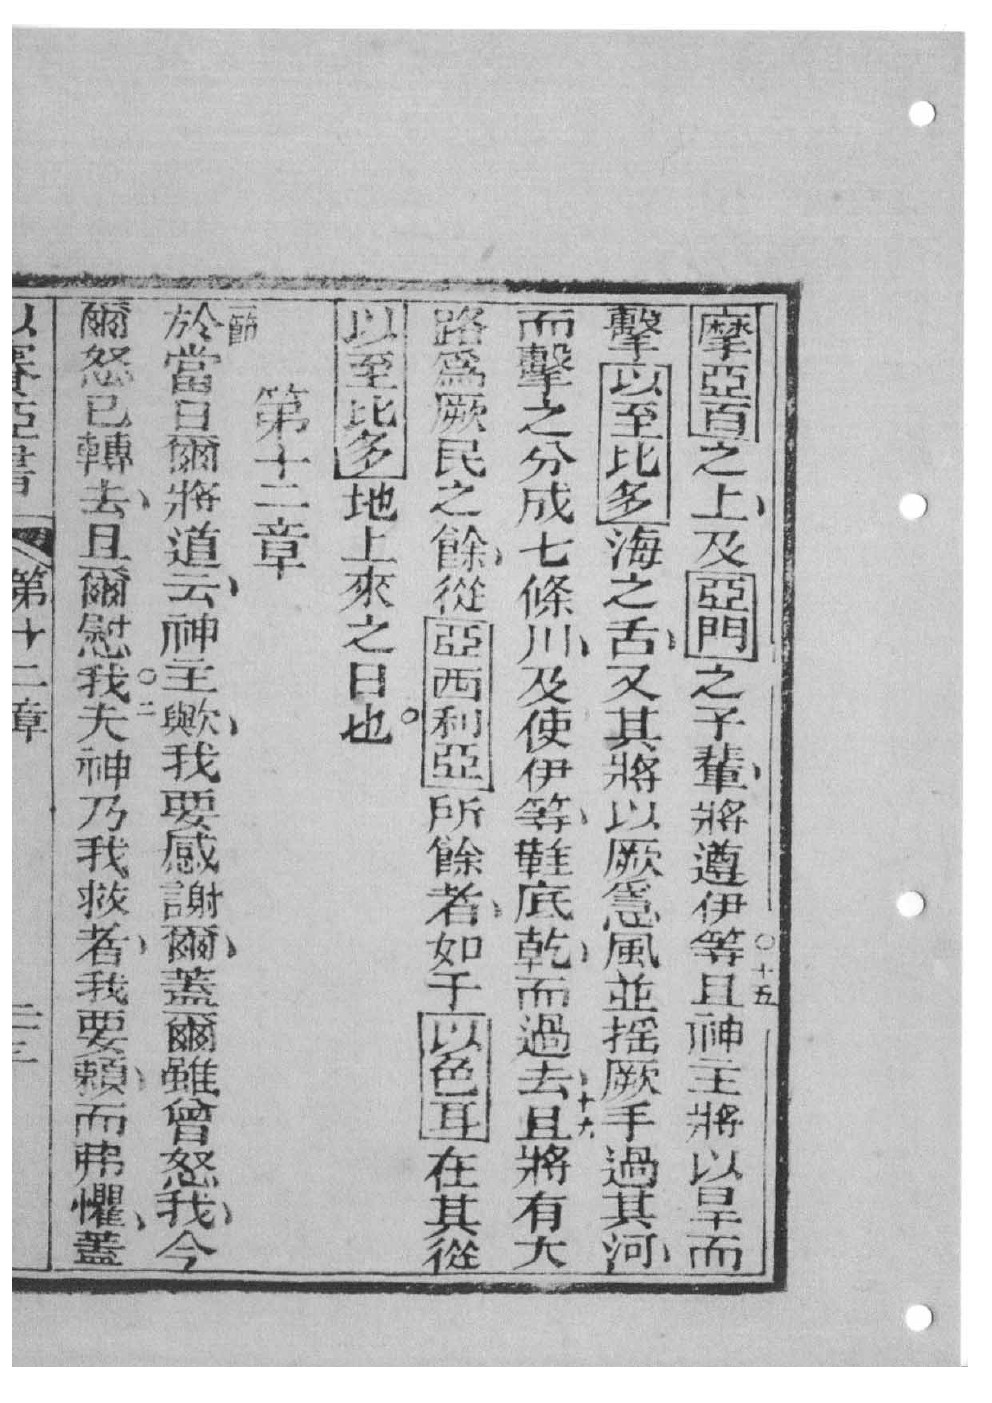 摩亞百之上、及亞門之子輩、將遵伊等○十五且神主將以旱而
擊以至比多海之舌、又其將以厥風並搖厥手過其河、
而擊之分成七條川、及使伊等、鞋底乾、而過去、十六且將有大
路爲厥民之餘、從亞西利亞所餘者、如于以色耳在其從
以至比多地上來之日也。
第十二章
節
於當日爾將道云、神主歟、我要感謝爾、蓋爾雖曾怒我、今
爾怒已轉去、且爾慰我○二夫神乃我救者、我要賴、而弗懼、蓋
以賽亞書 第十二章 二三